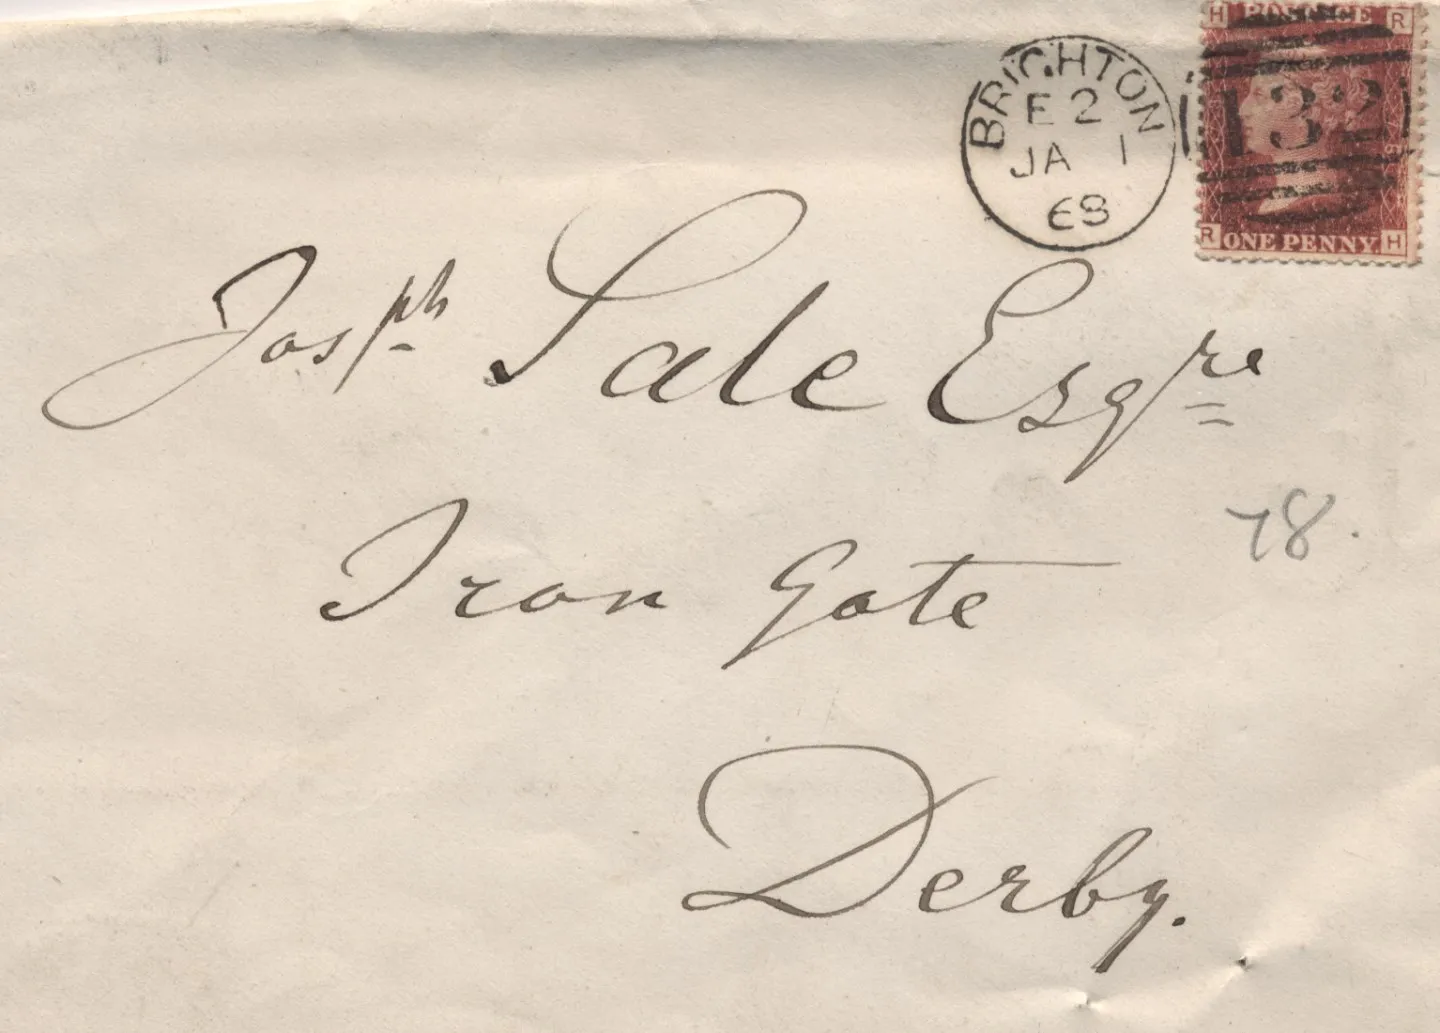 H POSTAGE R
BRIGHTON
E 2
JA 1
68
132
R ONE PENNY H
Josph Sale Esqre
Iron Gate
78.
Derby.